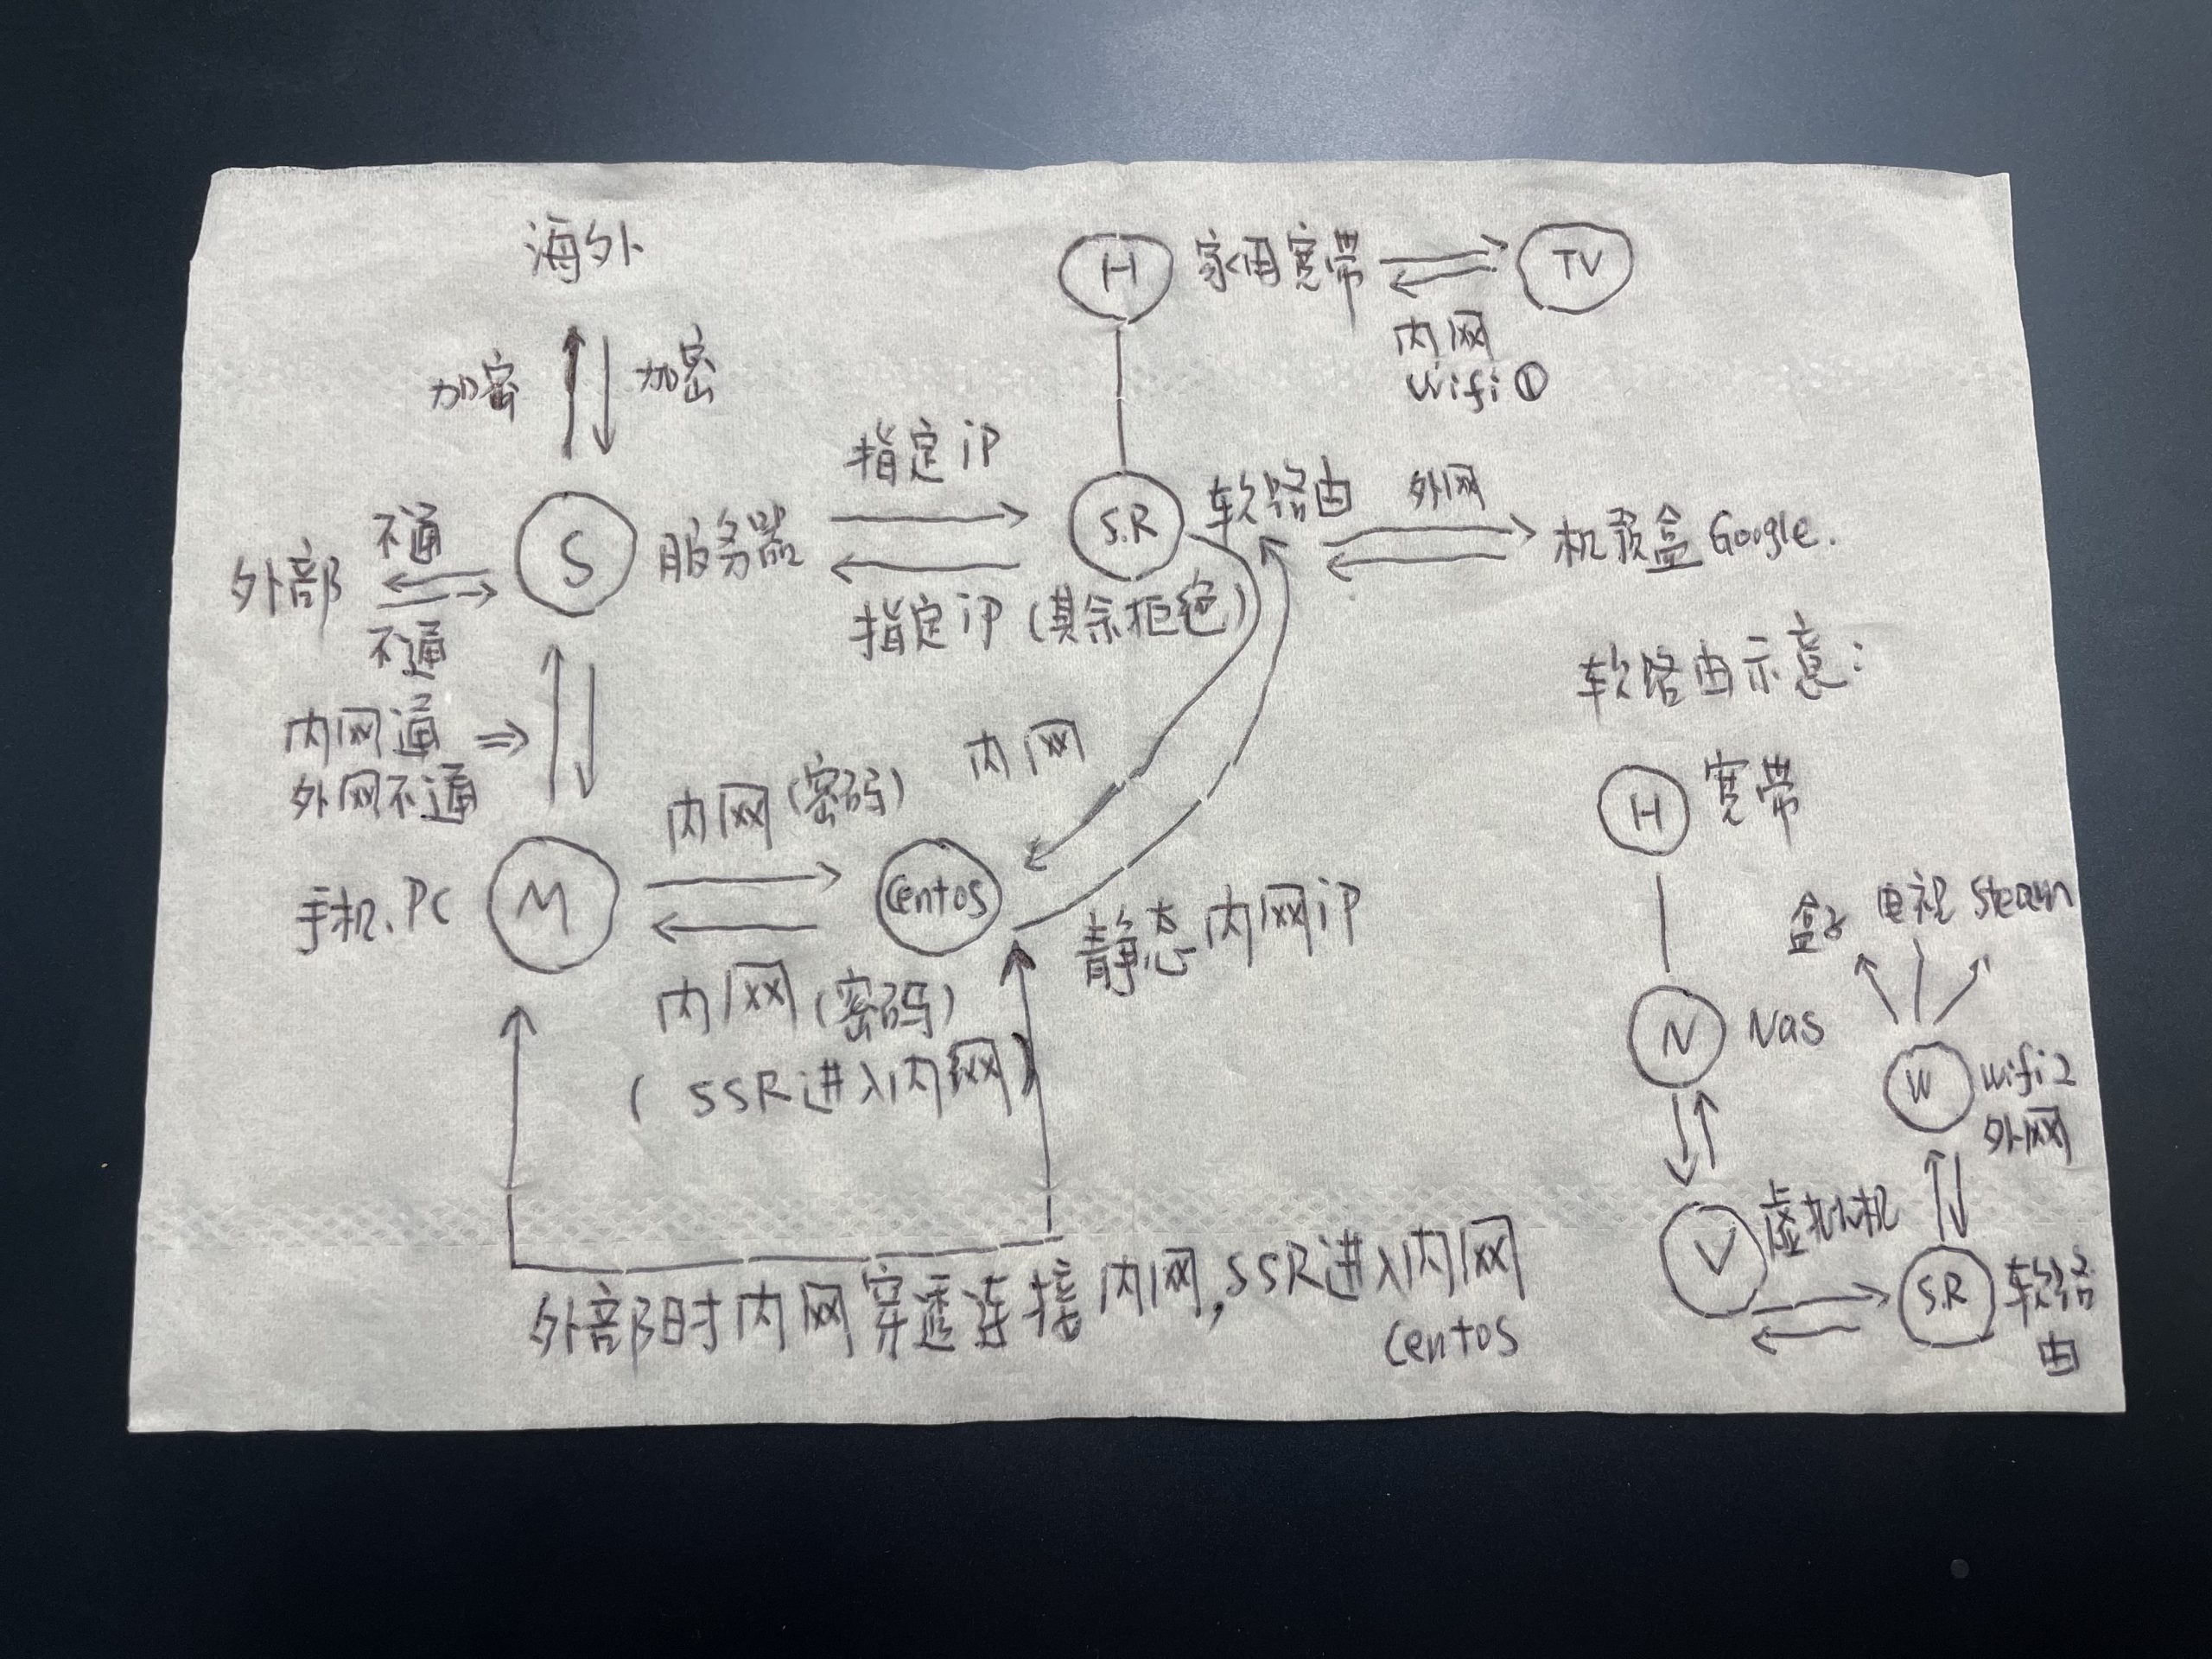 海外
加密
加密
H 家用宽带
TV
内网
Wifi①
指定iP
外部
不通
不通
S 服务器
指定iP(其余拒绝)
S.R 软路由
外网
机顶盒 Google.
软路由示意:
内网通
外网不通
手机.PC M
内网(密码)
内网
Centos
静态内网iP
内网(密码)
(SSR进入内网)
外部时内网穿透连接内网,SSR进入内网
Centos
H 宽带
N Nas
盒子 电视 Steam
W Wifi2
外网
V 虚拟机
S.R 软路
由